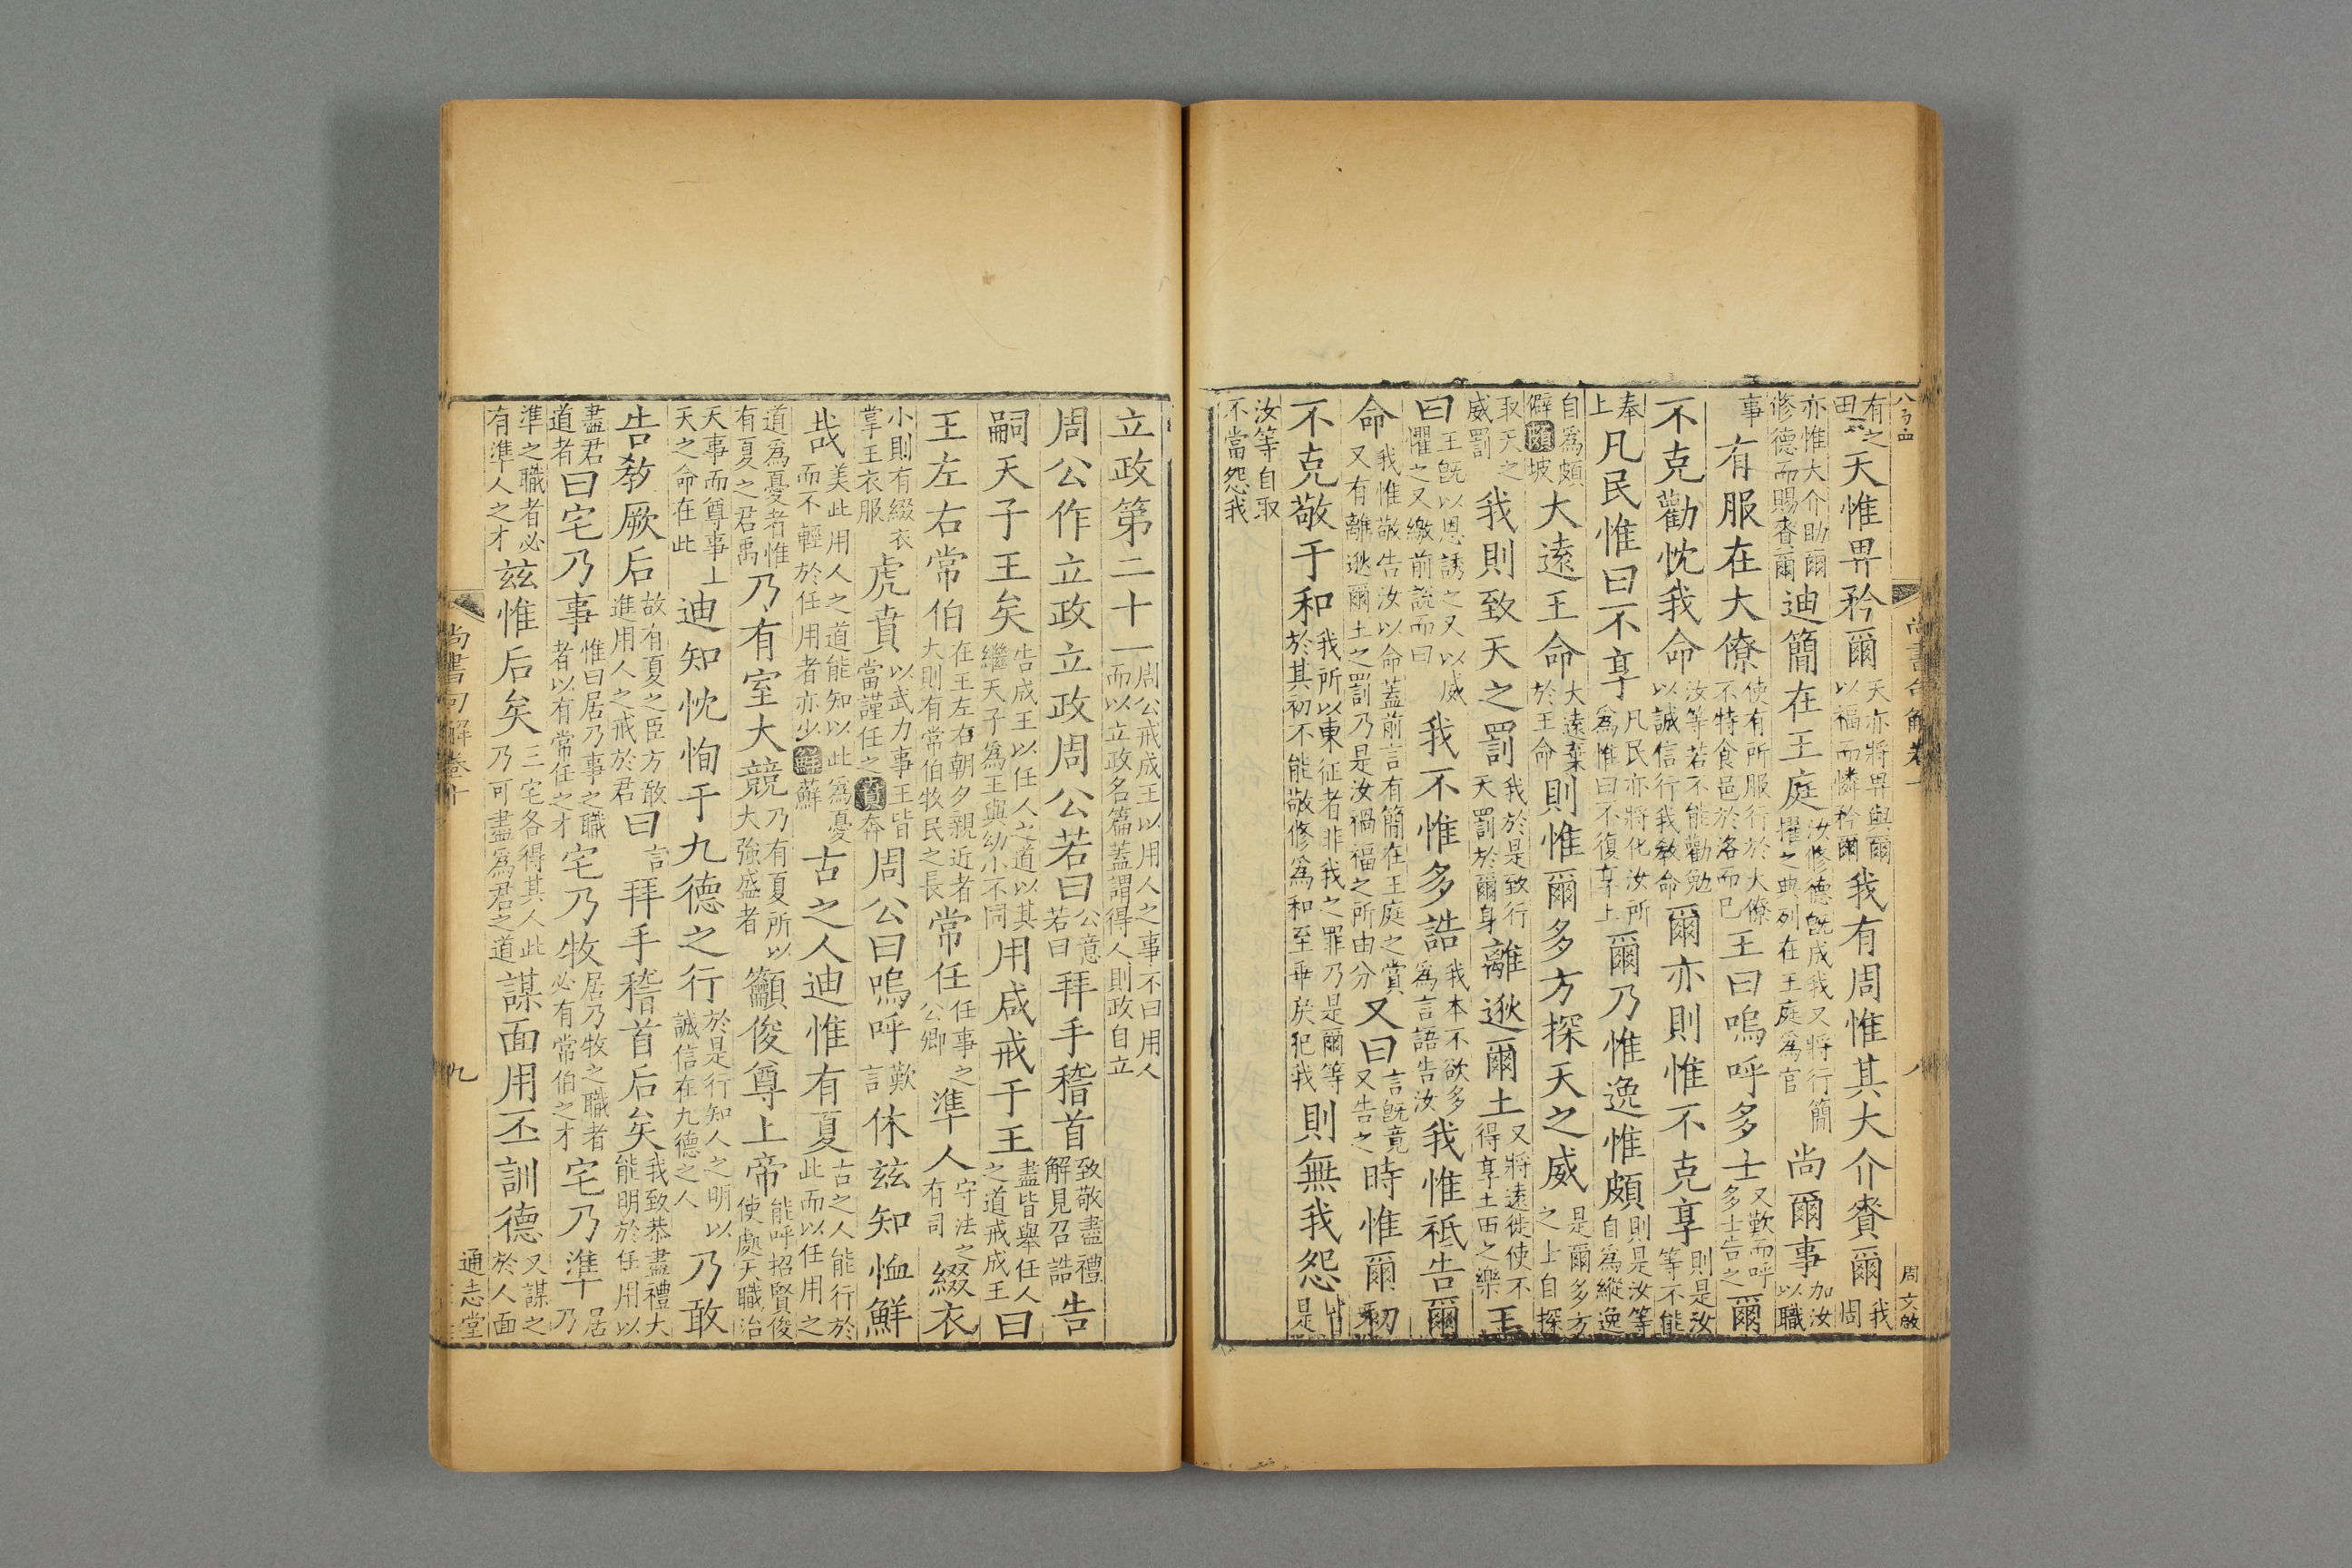 尚書句解卷十 八 周文啟
有之田天惟畀矜爾天亦將畀與爾以福而憐矜爾我有周惟其大介賚爾我周
亦惟大介助爾修德而賜賚爾迪簡在王庭汝修德既成我又將行簡擢之典列在王庭為官尚爾事加汝以職
事有服在大僚使有所服行於大僚不特食邑於洛而已王曰嗚呼多士又歎而呼多士告之爾
不克勸忱我命汝等若不能勸勉以誠信行我教命爾亦則惟不克享則是汝等不能
奉上凡民惟曰不享凡民亦將化汝所為惟曰不復享上爾乃惟逸惟頗則是汝等自為縱逸
自為頗僻頗坡大遠王命大遠棄於王命則惟爾多方探天之威是爾多方之上自探
取天之威罰我則致天之罰我於是致行天罰於爾身離逖爾土又將遠徙使不得享土田之樂王
曰王既以恩誘之又以威懼之又繳前說而曰我不惟多誥我本不欲多為言語告汝我惟祗告爾
命我惟敬告汝以命蓋前言有簡在王庭之賞又有離逖爾土之罰乃是汝禍福之所由分又曰言既竟又告之時惟爾初
不克敬于和我所以東征者非我之罪乃是爾等於其初不能敬修為和至乖戾犯我則無我怨皆是
汝等自取不當怨我
立政第二十一周公戒成王以用人之事不曰用人而以立政名篇蓋謂得人則政自立
周公作立政立政周公若曰公意若曰拜手稽首致敬盡禮解見召誥告
嗣天子王矣告成王以任人之道以其繼天子為王與幼小不同用咸戒于王盡皆舉任人之道戒成王曰
王左右常伯在王左右朝夕親近者大則有常伯牧民之長常任任事之公卿準人守法之有司綴衣
小則有綴衣掌王衣服虎賁以武力事王皆當謹任之賁奔周公曰嗚呼歎言休茲知恤鮮
哉美此用人之道能知以此為憂而不輕於任用者亦少鮮蘇古之人迪惟有夏古之人能行於此而以任用之
道為憂者惟有夏之君禹乃有室大競乃有夏所以大強盛者籲俊尊上帝能呼招賢俊使處天職治
天事而尊事上天之命在此迪知忱恂于九德之行於是行知人之明以誠信在九德之人乃敢
告教厥后故有夏之臣方敢進用人之戒於君曰言拜手稽首后矣我致恭盡禮大能明於任用以
盡君道者曰宅乃事惟曰居乃事之職者以有常任之才宅乃牧居乃牧之職者必有常伯之才宅乃準居乃
準之職者必有準人之才茲惟后矣三宅各得其人此乃可盡為君之道謀面用丕訓德又謀之於人面
尚書句解卷十 九 通志堂